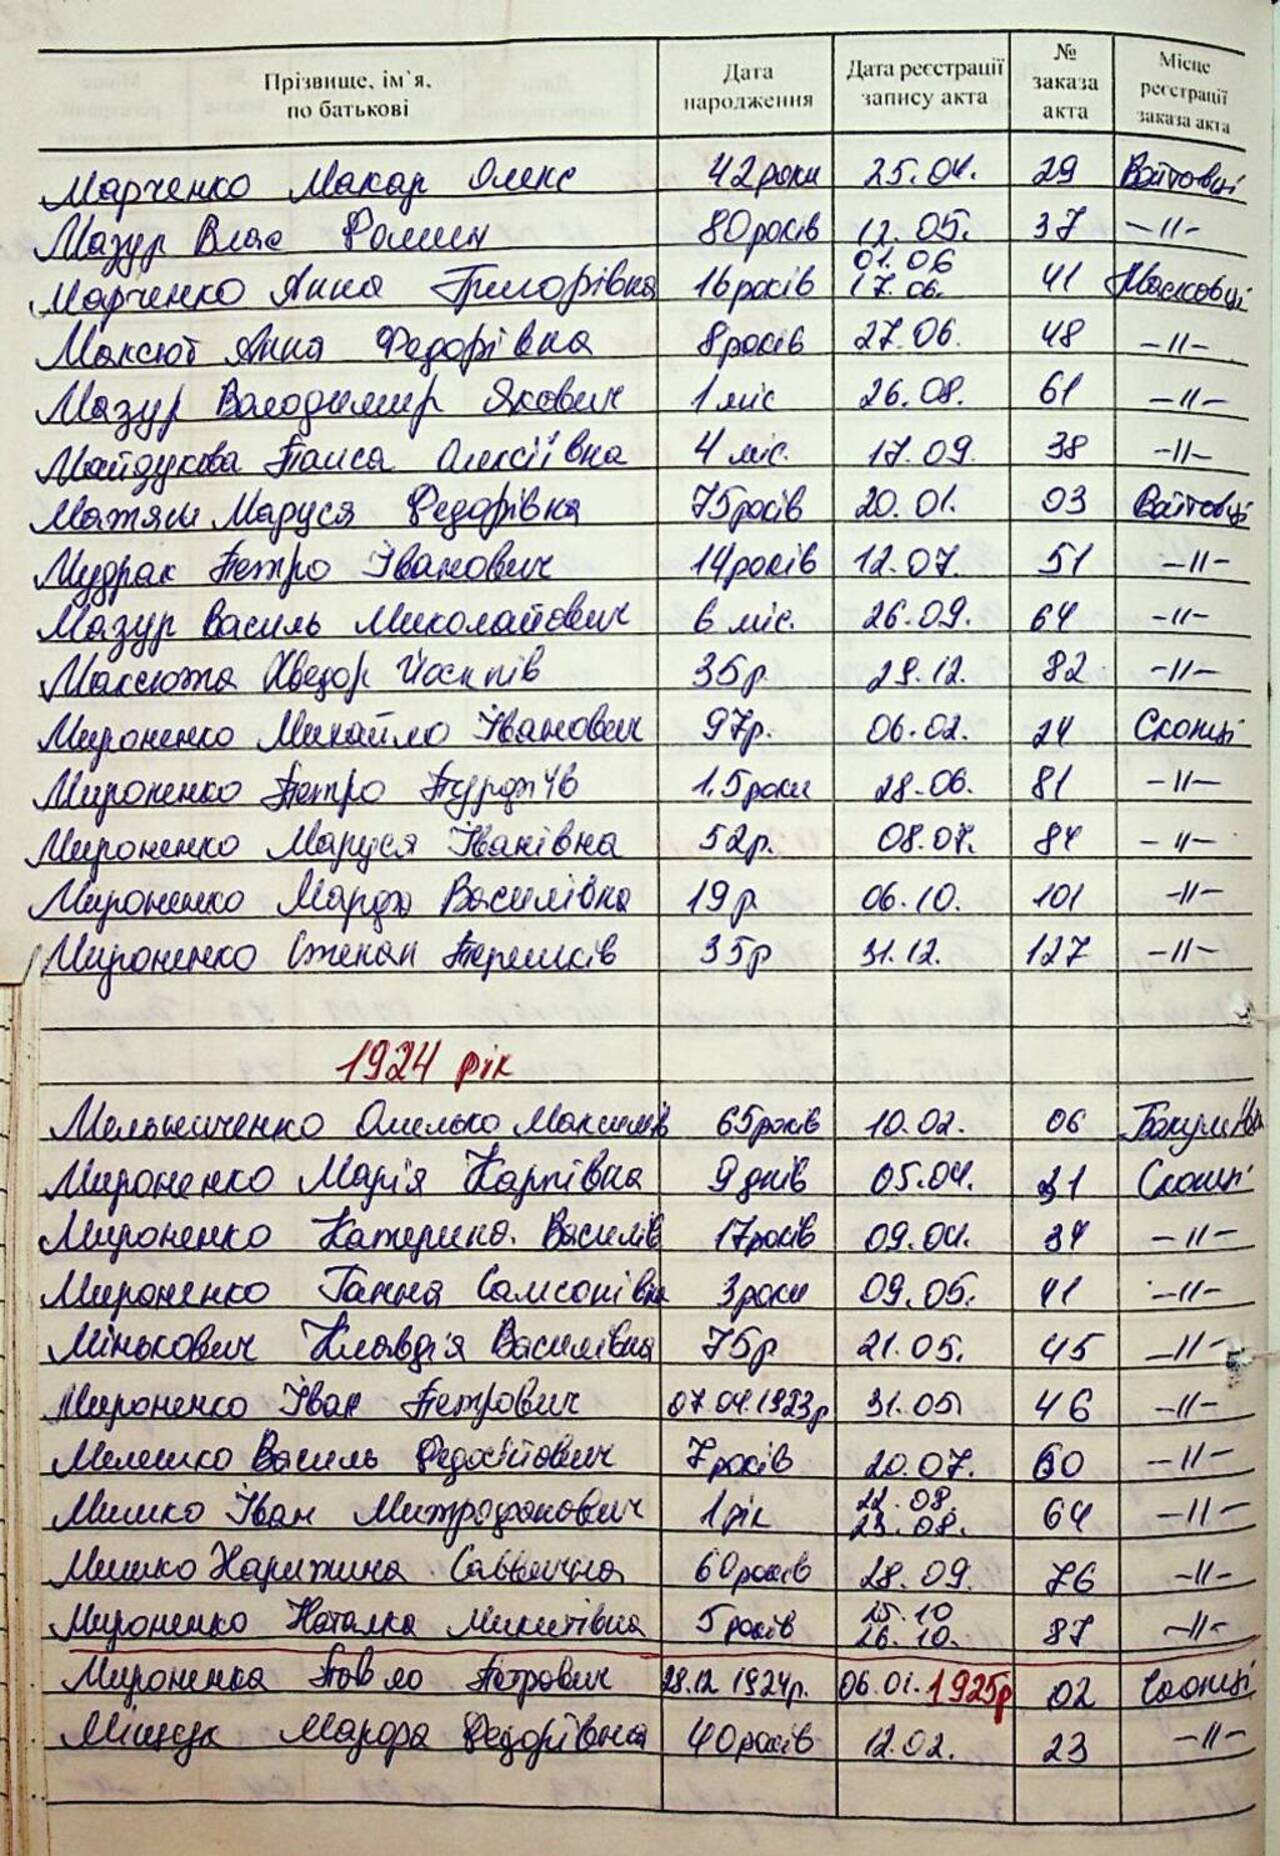 Прізвище, ім`я, по батькові | Дата народження | Дата реєстрації запису акта | № заказа акта | Місце реєстрації заказа акта
Марченко Макар Олекс 42 роки 25.04. 29 Войтовці
Мазур Влас Фомич 80 років 12.05. 37 -||-
Марченко Анна Григорівна 16 років 01.06 17.06. 41 Масковці
Максют Анна Федорівна 8 років 27.06. 48 -||-
Мазур Володимир Якович 1 міс 26.08. 61 -||-
Майдукова Таиса Олексіївна 4 міс. 17.09. 38 -||-
Матяш Маруся Федорівна 75 років 20.01. 03 Войтовці
Мудрак Петро Іванович 14 років 12.07. 51 -||-
Мазур Василь Миколайович 6 міс. 26.09. 64 -||-
Максюта Хведор Йосипів 35 р. 29.12. 82 -||-
Мироненко Михайло Іванович 97 р. 06.02. 24 Скопці
Мироненко Петро 1,5 роки 28.06. 81 -||-
Мироненко Маруся Іванівна 52 р. 08.07. 84 -||-
Мироненко Марфа Василівна 19 р 06.10. 101 -||-
Мироненко Степан Терешків 35 р 31.12. 127 -||-
1924 рік
Мельниченко Омелько Максимів 65 років 10.02. 06
Мироненко Марія Карпівна 9 днів 05.04. 31 Скопці
Мироненко Катерина. Василів 17 років 09.04. 34 -||-
Мироненко Ганна Самсонівна 3 роки 09.05. 41 -||-
Мінькович Клавдія Василівна 75 р 21.05. 45 -||-
Мироненко Іван Петрович 07.04.1923 р 31.05. 46 -||-
Мелешко Василь Федосійович 7 років 20.07. 60 -||-
Мишко Іван Митрофанович 1 рік 22.08. 23.08. 64 -||-
Мишко Харитина Саввична 60 років 28.09. 76 -||-
Мироненко Наталка Микитівна 5 років 25.10 26.10. 87 -||-
Мироненка Павло Петрович 28.12 1924 р. 06.01.1925 р 02 Скопці
Міщук Марфа Федорівна 40 років 12.02. 23 -||-